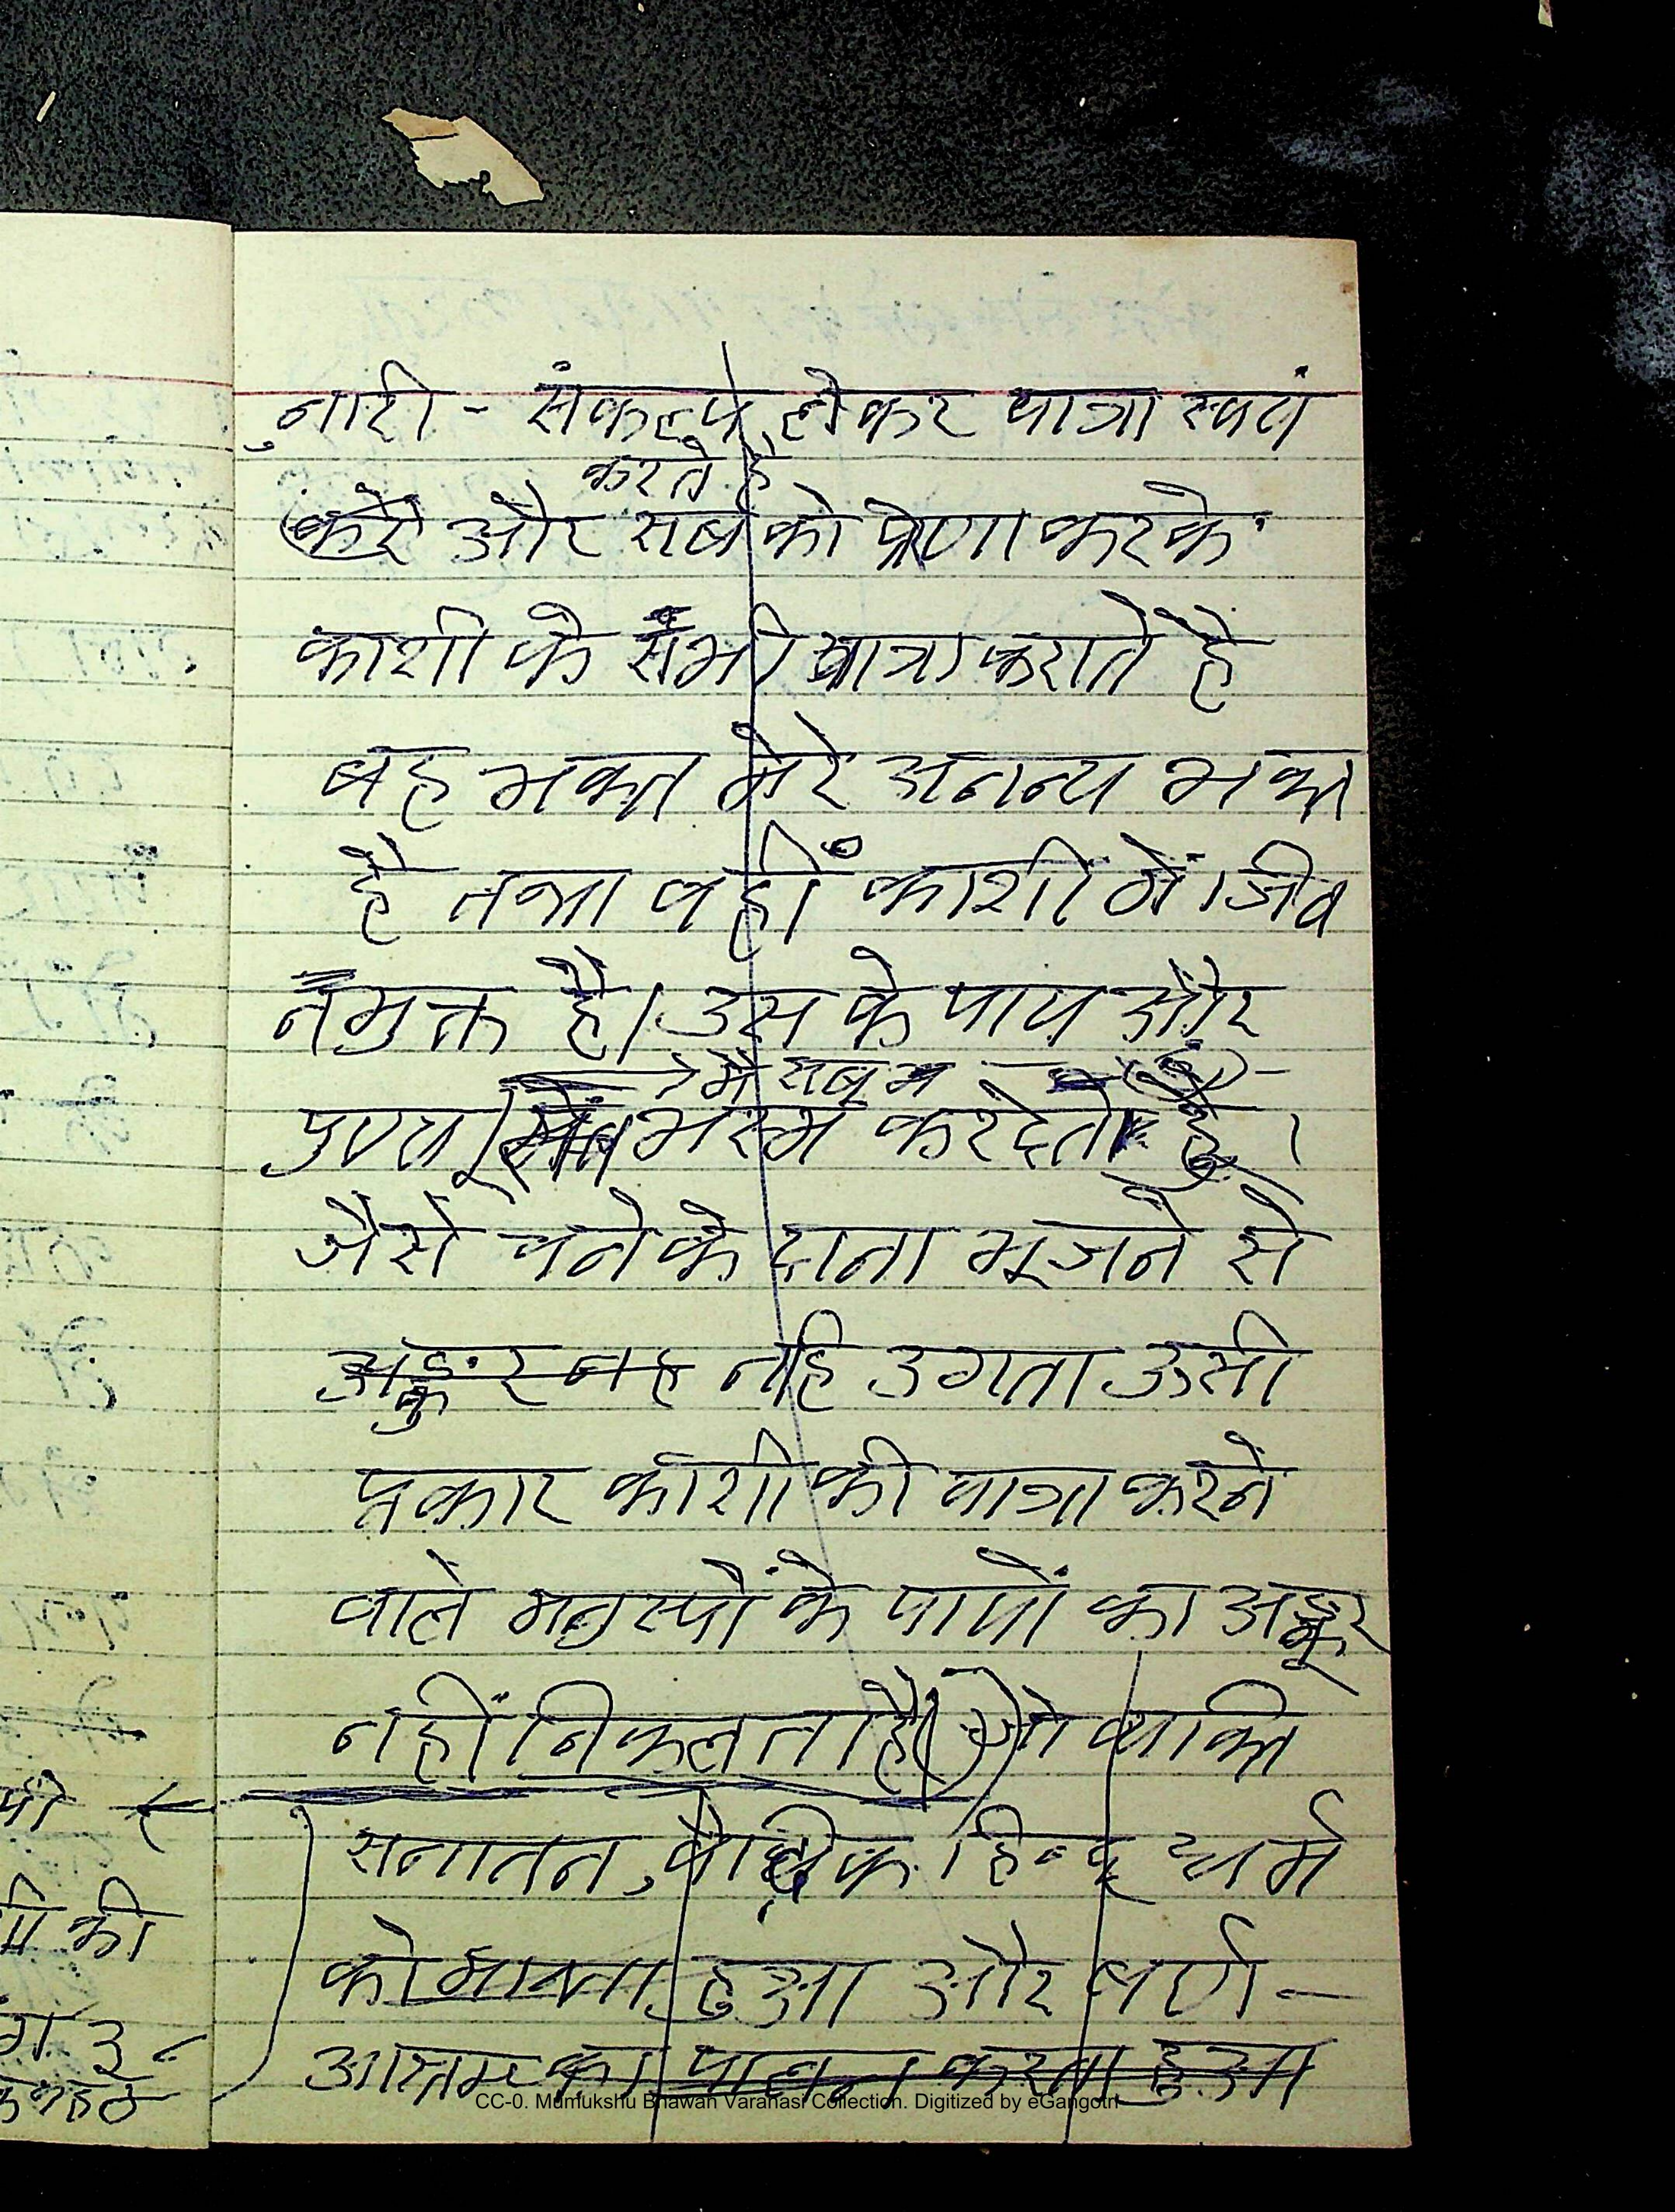 नारी - संकल्प लेकर यात्रा स्वतं
करते है
करे और सब को प्रेणा करके
काशी के सभी यात्रा कराते है
बह भक्त मेरे अनन्य भक्त
है तथा वहीं काशी में जिव
नमुक्त है। उस के पाप और
मै सब
पुण्य भस्म करदेता हूँ।
जैसे चने के दाना भूजने से
अङ्कुर नह नहि उगता ऊसी
प्रकार काशी की यात्रा करने
वाले मनुस्यों के पापों का अङ्कुर
नहीं निकलता है। जो व्यक्ति
सनातन, वैदिक हिन्दू धर्म
को मानता हुआ और बर्ण-
आश्रम का पालन करता हुआ
पी
की
ग 3
CC-0. Mumukshu Bhawan Varanasi Collection. Digitized by eGangotri